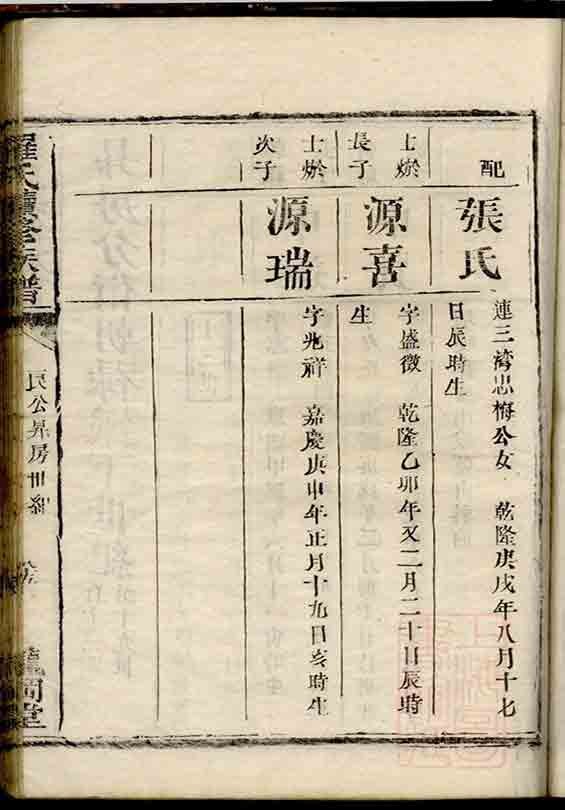 配
張氏
連三灣忠梅公女 乾隆庚戌年八月十七
日辰時生
士燉
長子
源喜
字盛徵 乾隆乙卯年又二月二十日辰時
生
士燉
次子
源瑞
字兆祥 嘉慶庚申年正月十九日亥時生
羅氏續修族譜
民公昇房世紀